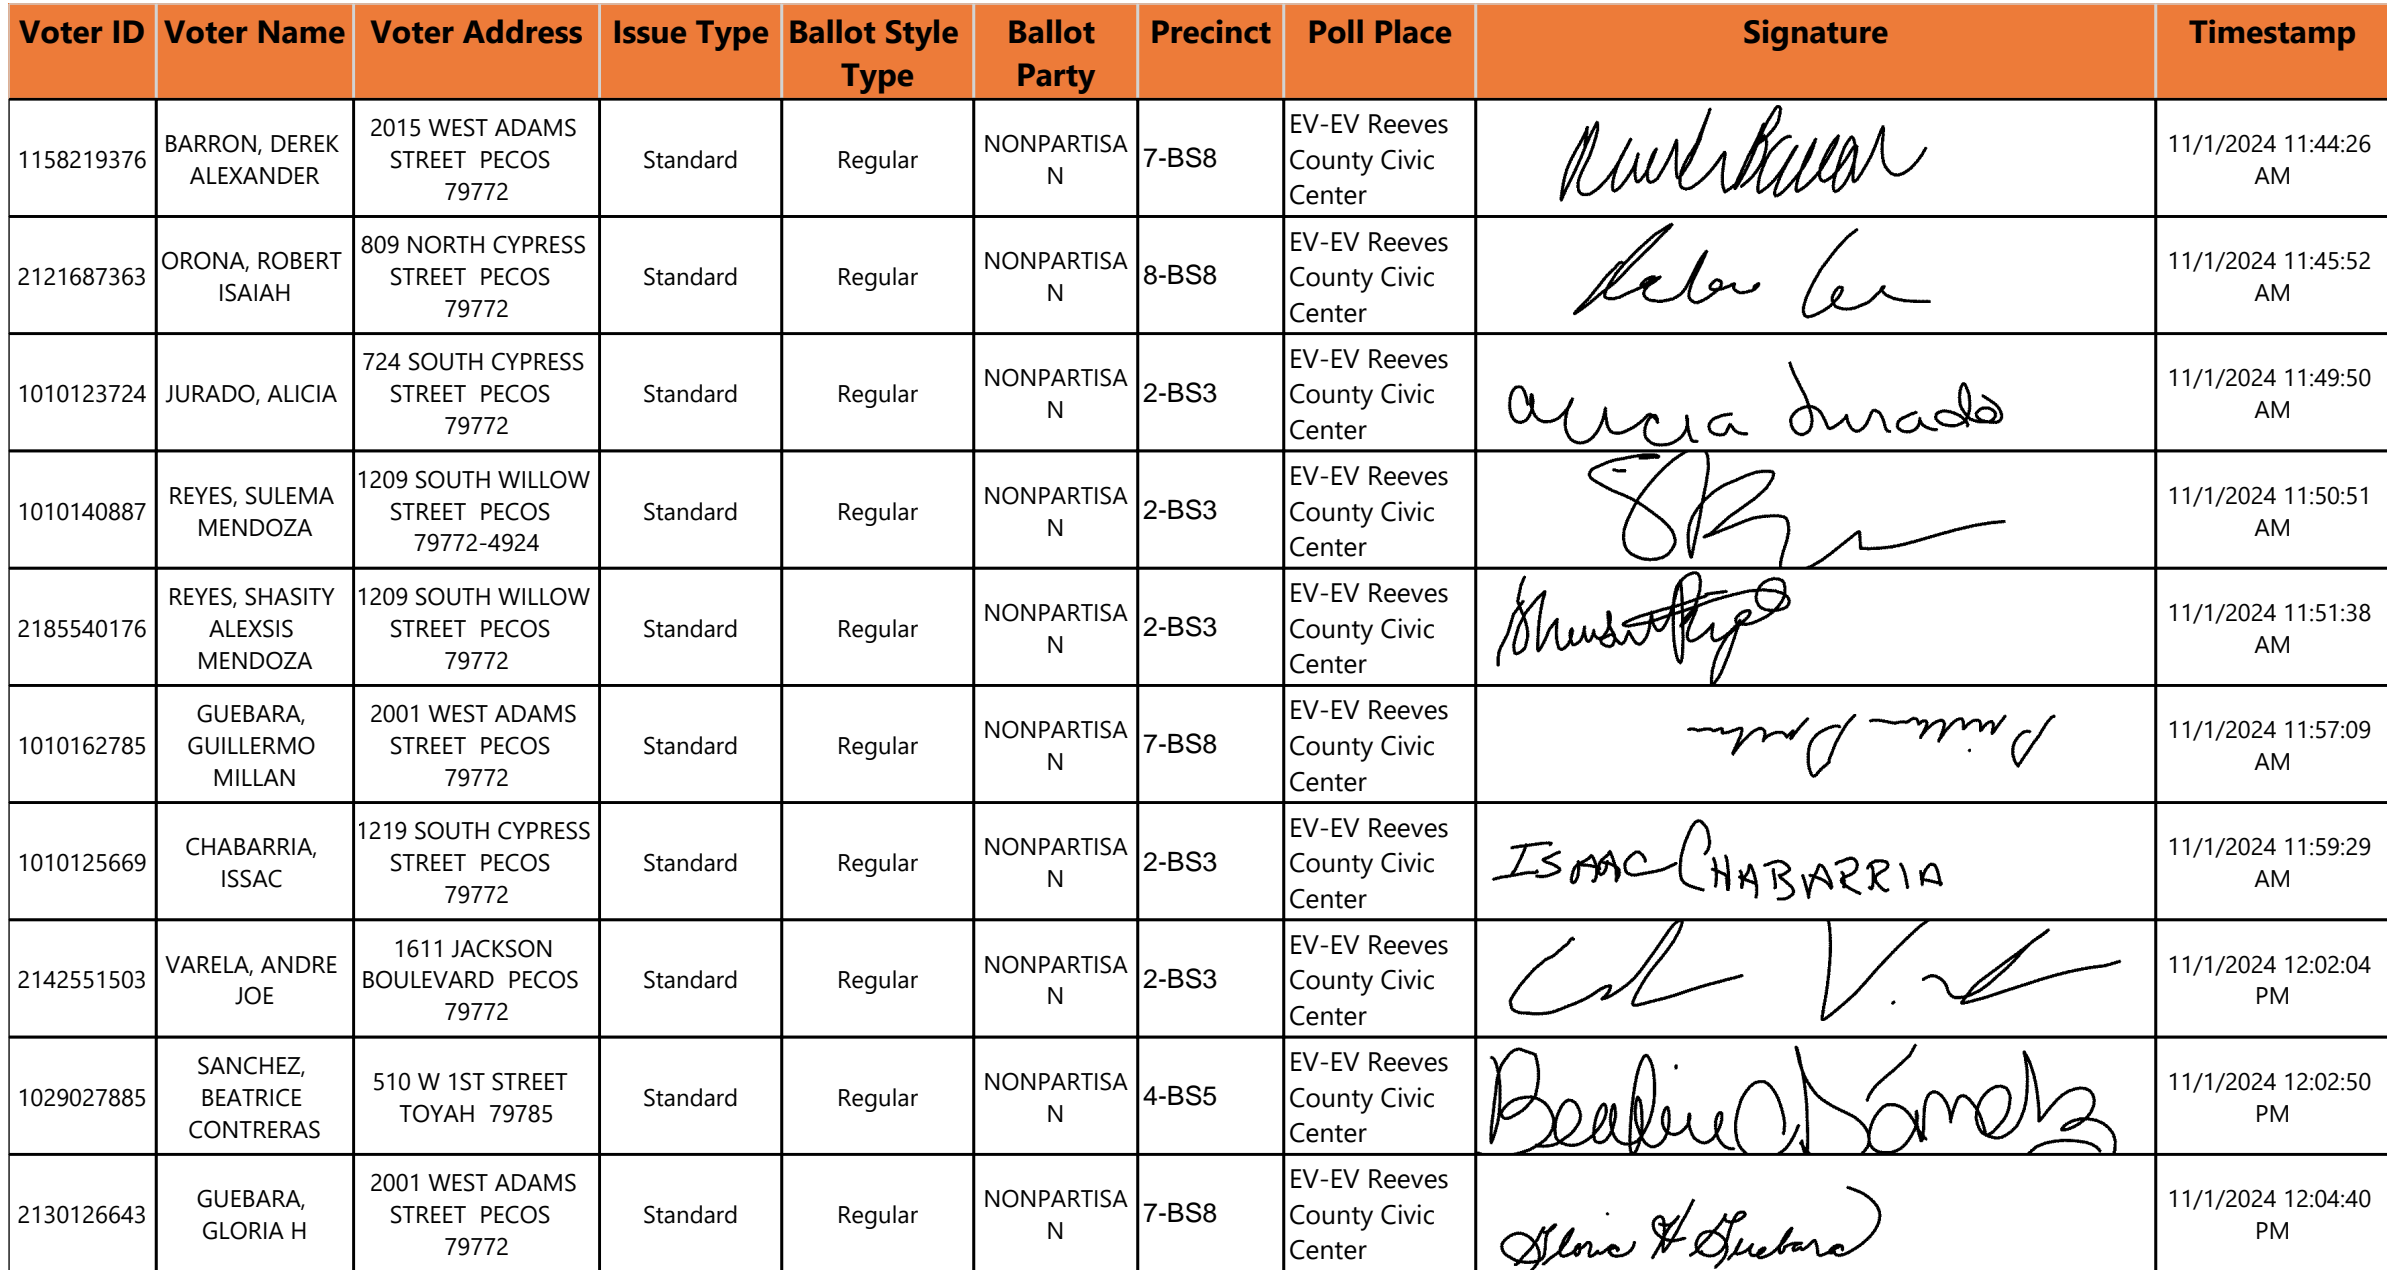 Voter ID Voter Name Voter Address Issue Type Ballot Style Type Ballot Party Precinct Poll Place Signature Timestamp
1158219376 BARRON, DEREK ALEXANDER 2015 WEST ADAMS STREET PECOS 79772 Standard Regular NONPARTISAN 7-BS8 EV-EV Reeves County Civic Center 11/1/2024 11:44:26 AM
2121687363 ORONA, ROBERT ISAIAH 809 NORTH CYPRESS STREET PECOS 79772 Standard Regular NONPARTISAN 8-BS8 EV-EV Reeves County Civic Center 11/1/2024 11:45:52 AM
1010123724 JURADO, ALICIA 724 SOUTH CYPRESS STREET PECOS 79772 Standard Regular NONPARTISAN 2-BS3 EV-EV Reeves County Civic Center Alicia Jurado 11/1/2024 11:49:50 AM
1010140887 REYES, SULEMA MENDOZA 1209 SOUTH WILLOW STREET PECOS 79772-4924 Standard Regular NONPARTISAN 2-BS3 EV-EV Reeves County Civic Center 11/1/2024 11:50:51 AM
2185540176 REYES, SHASITY ALEXSIS MENDOZA 1209 SOUTH WILLOW STREET PECOS 79772 Standard Regular NONPARTISAN 2-BS3 EV-EV Reeves County Civic Center 11/1/2024 11:51:38 AM
1010162785 GUEBARA, GUILLERMO MILLAN 2001 WEST ADAMS STREET PECOS 79772 Standard Regular NONPARTISAN 7-BS8 EV-EV Reeves County Civic Center 11/1/2024 11:57:09 AM
1010125669 CHABARRIA, ISSAC 1219 SOUTH CYPRESS STREET PECOS 79772 Standard Regular NONPARTISAN 2-BS3 EV-EV Reeves County Civic Center ISAAC CHABARRIA 11/1/2024 11:59:29 AM
2142551503 VARELA, ANDRE JOE 1611 JACKSON BOULEVARD PECOS 79772 Standard Regular NONPARTISAN 2-BS3 EV-EV Reeves County Civic Center 11/1/2024 12:02:04 PM
1029027885 SANCHEZ, BEATRICE CONTRERAS 510 W 1ST STREET TOYAH 79785 Standard Regular NONPARTISAN 4-BS5 EV-EV Reeves County Civic Center 11/1/2024 12:02:50 PM
2130126643 GUEBARA, GLORIA H 2001 WEST ADAMS STREET PECOS 79772 Standard Regular NONPARTISAN 7-BS8 EV-EV Reeves County Civic Center Gloria H Guebara 11/1/2024 12:04:40 PM